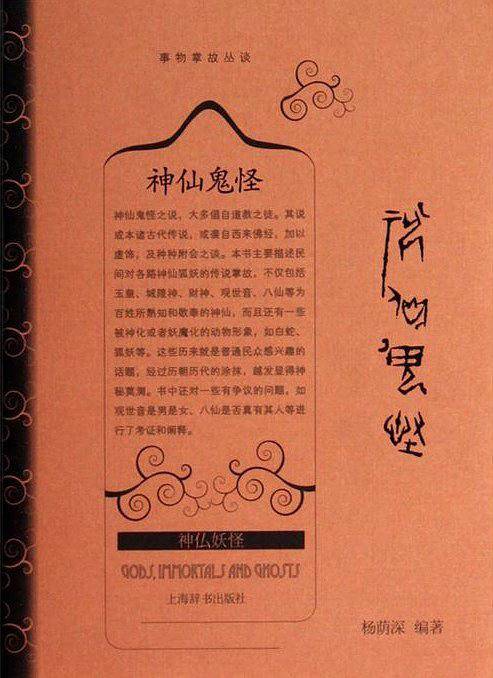 事物掌故丛谈
神仙鬼怪
神仙鬼怪之说，大多倡自道教之徒。其说
或本诸古代传说，或袭自西来佛经，加以
虚饰，及种种附会之谈。本书主要描述民
间对各路神仙狐妖的传说掌故。不仅包括
玉皇、城隍神、财神、观世音、八仙等为
百姓所熟知和敬奉的神仙，而且还有一些
被神化或者妖魔化的动物形象，如白蛇、
狐妖等。这些历来就是普通民众感兴趣的
话题，经过历朝历代的涂抹，越发显得神
秘莫测。书中还对一些有争议的问题，如
观世音是男是女、八仙是否真有其人等进
行了考证和阐释。
神仏妖怪
GODS, IMMORTALS AND GHOSTS
上海辞书出版社
神仙鬼怪
杨荫深 编著